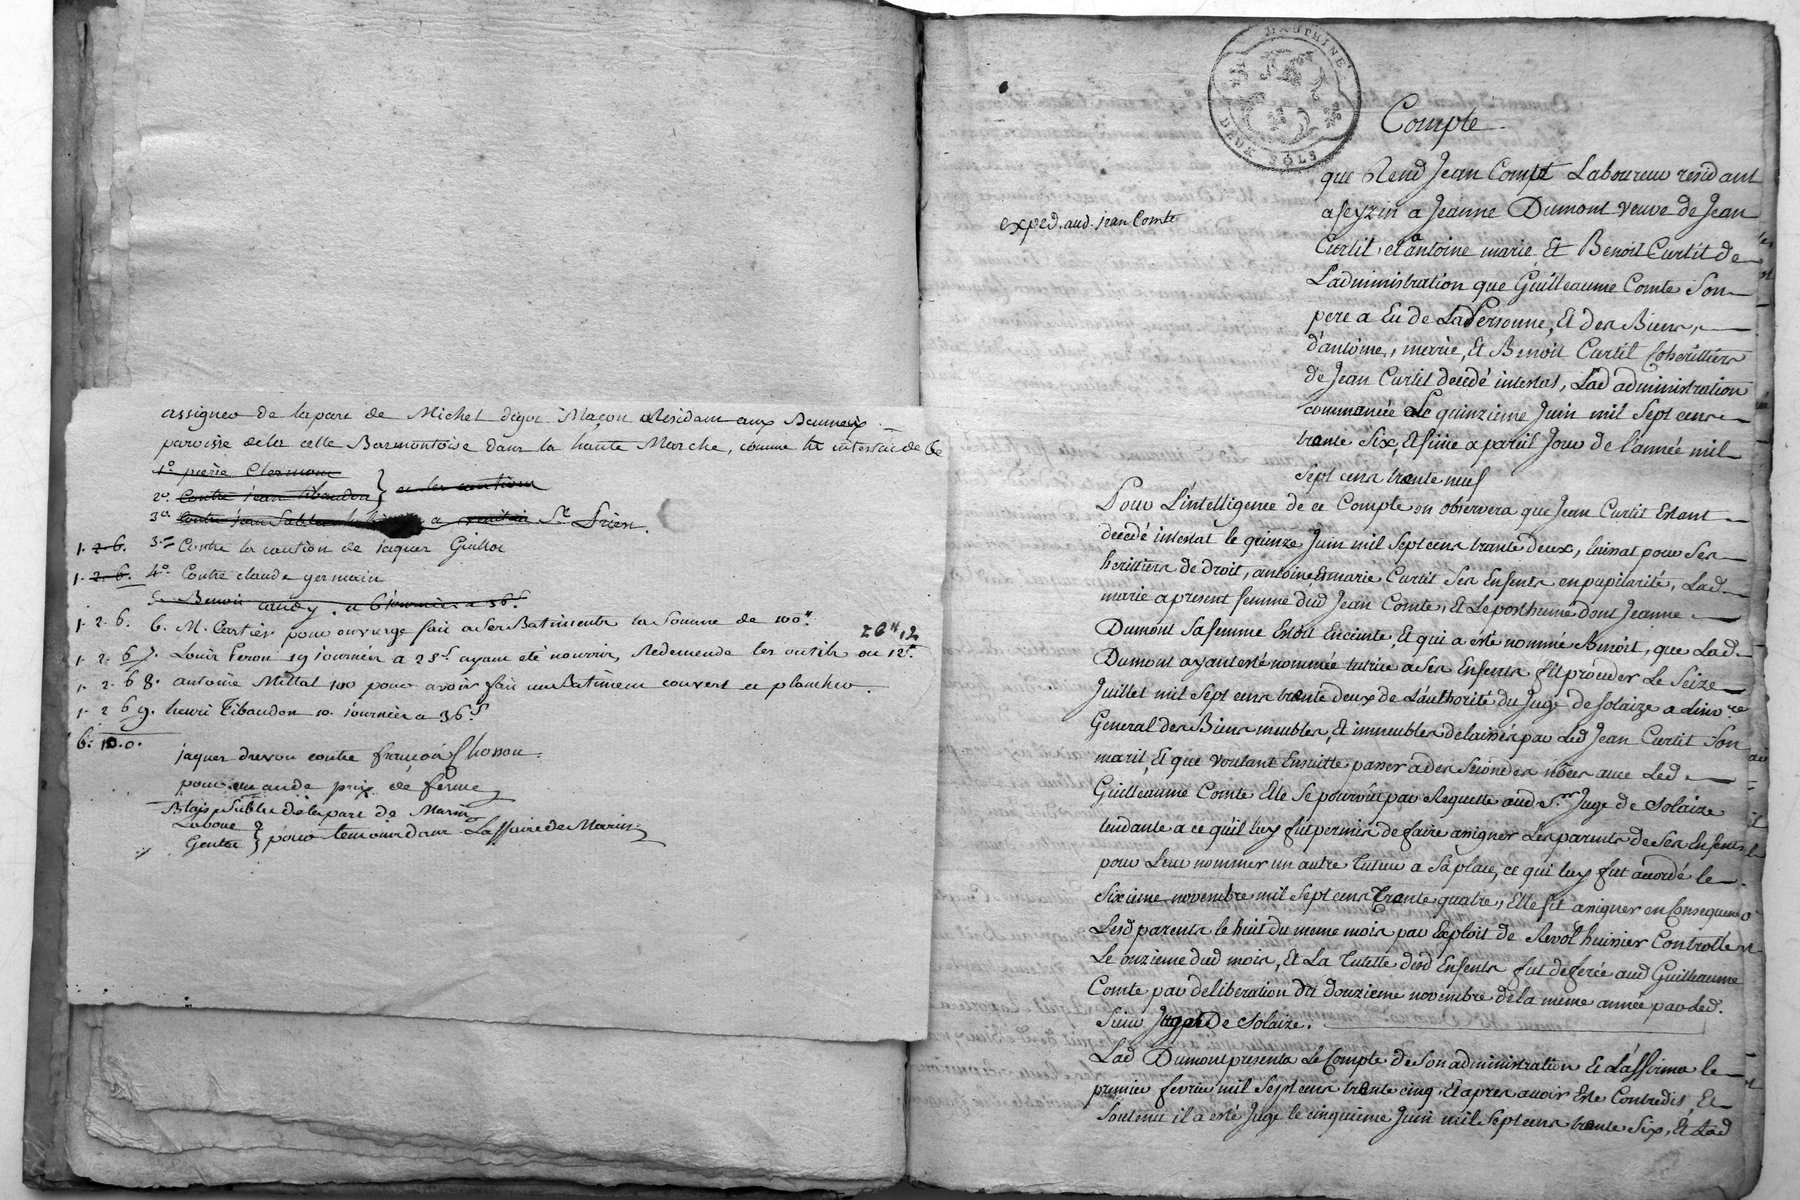 assigner de la part de Michel digot Maçon Residant aux
paroisse de la celle Barmontoise dans la haute Marche, comme
1° pierre Clermont
2° Contre jean tibaudon } et les cautions
3° Contre jean Sablet a St Prien
1. 2. 6. 3° Contre la caution de jaques Guillot
1. 2. 6. 4° Contre claude germain
5 Benoit a 6 journées a 36s
1. 2. 6. 6. M. Cartier pour ouvrage fait a ses Batiments la somme de 100tt
26tt 12
1. 2. 6 7. Louis Peron 19 journées a 28s ayant eté nourris, Redemende les outils ou 12tt
1. 2. 6 8. antoine Mittal 100 pour avoir fait un Batiment couvert et plancher.
1. 2 6 9. henri Tibaudon 10. journées a 36s
6. 15. 0.
jaques drevon contre françois Chosson
pour prix de ferme
Blaise Sublet de la part de Marin
Laboue
Gentet } pour temoin dans L'affaire de Marin
DAUPHINE
DEUX SOLS
Compte
que Rend Jean Compt Laboureur residant
a feyzin a Jeanne Dumont veuve de Jean
Curtil, et a antoine marie Et Benoit Curtil de
L'administration que Guilleaume Comte Son
pere a Eu de La Personne, Et des Biens,
d'antoine, marie, Et Benoit Curtil Coherittiers
de Jean Curtil decedé intestat, Lad administration
commancée Le quinzieme Juin mil Sept cens
trante Six, Et finie a pareil Jour de l'année mil
Sept cens trante neuf
exped. aud. jean Comte
Pour L'intelligence de ce Compte on observera que Jean Curtil Estant
decedé intestat le quinze Juin mil Sept cens trante deux, laissat pour Ses
herittiers de droit, antoine Et marie Curtil Ses Enfents en pupilarité, Lad
marie a present femme dud Jean Comte, Et Le posthume dont Jeanne
Dumont Sa femme Estoit Enceinte, Et qui a esté nommé Benoit, que Lad
Dumont ayant esté nommée tutrice a Ses Enfents fit proceder Le Seize
Juillet mil Sept cens trante deux de L'authorité du Juge de Solaize a L'invre
General des Biens meubles, Et immeubles delaissés par Led Jean Curtil Son
maril, Et que voulant Ensuitte passer a des Secondes nôces avec Led
Guilleaume Comte Elle Se pourvut par Requette aud Sr Juge de Solaize
tendante a ce qu'il luy fut permis de faire assigner Les parents de Ses Enfents
pour Leur nommer un autre Tuteur a Sa place, ce qui luy fut accordé le
Sixieme novembre mil Sept cens Trante quatre, Elle fit assigner en Consequence
Lesd parents le huit du meme mois par Exploit de Revol huissier Controllé
Le onzieme dud mois, Et La Tutelle desd Enfents fut deferée aud Guilleaume
Comte par deliberation du douzieme novembre de la meme année par Led.
Sieur Juge De Solaize.
Lad Dumont presenta Le Compte de Son administration Et L'affirma le
premier fevrier mil Sept cens trante cinq, Et apres avoir Esté Contredit, Et
Soutenu il a esté Jugé le cinquieme Juin mil Sept cens trante Six, Et Lad